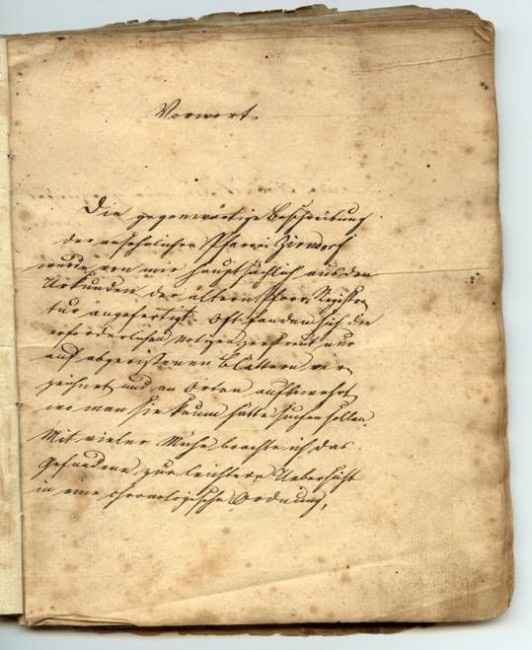 Vorwort.
Die gegenwärtige Beschreibung
der ansehnlichen Pfarrei Zirndorf
wurde von mir hauptsächlich aus den
Urkunden der ältern Pfarr-Registra-
tur angefertigt. Oft fanden sich die
erforderlichen Notizen zerstreut nur
auf abgerissenen Blättern ver-
zeichnet und an Orten aufbewahrt,
wo man sie kaum hätte suchen sollen.
Mit vieler Mühe brachte ich das
Gefundene zur leichtern Uebersicht
in eine chronologische Ordnung,